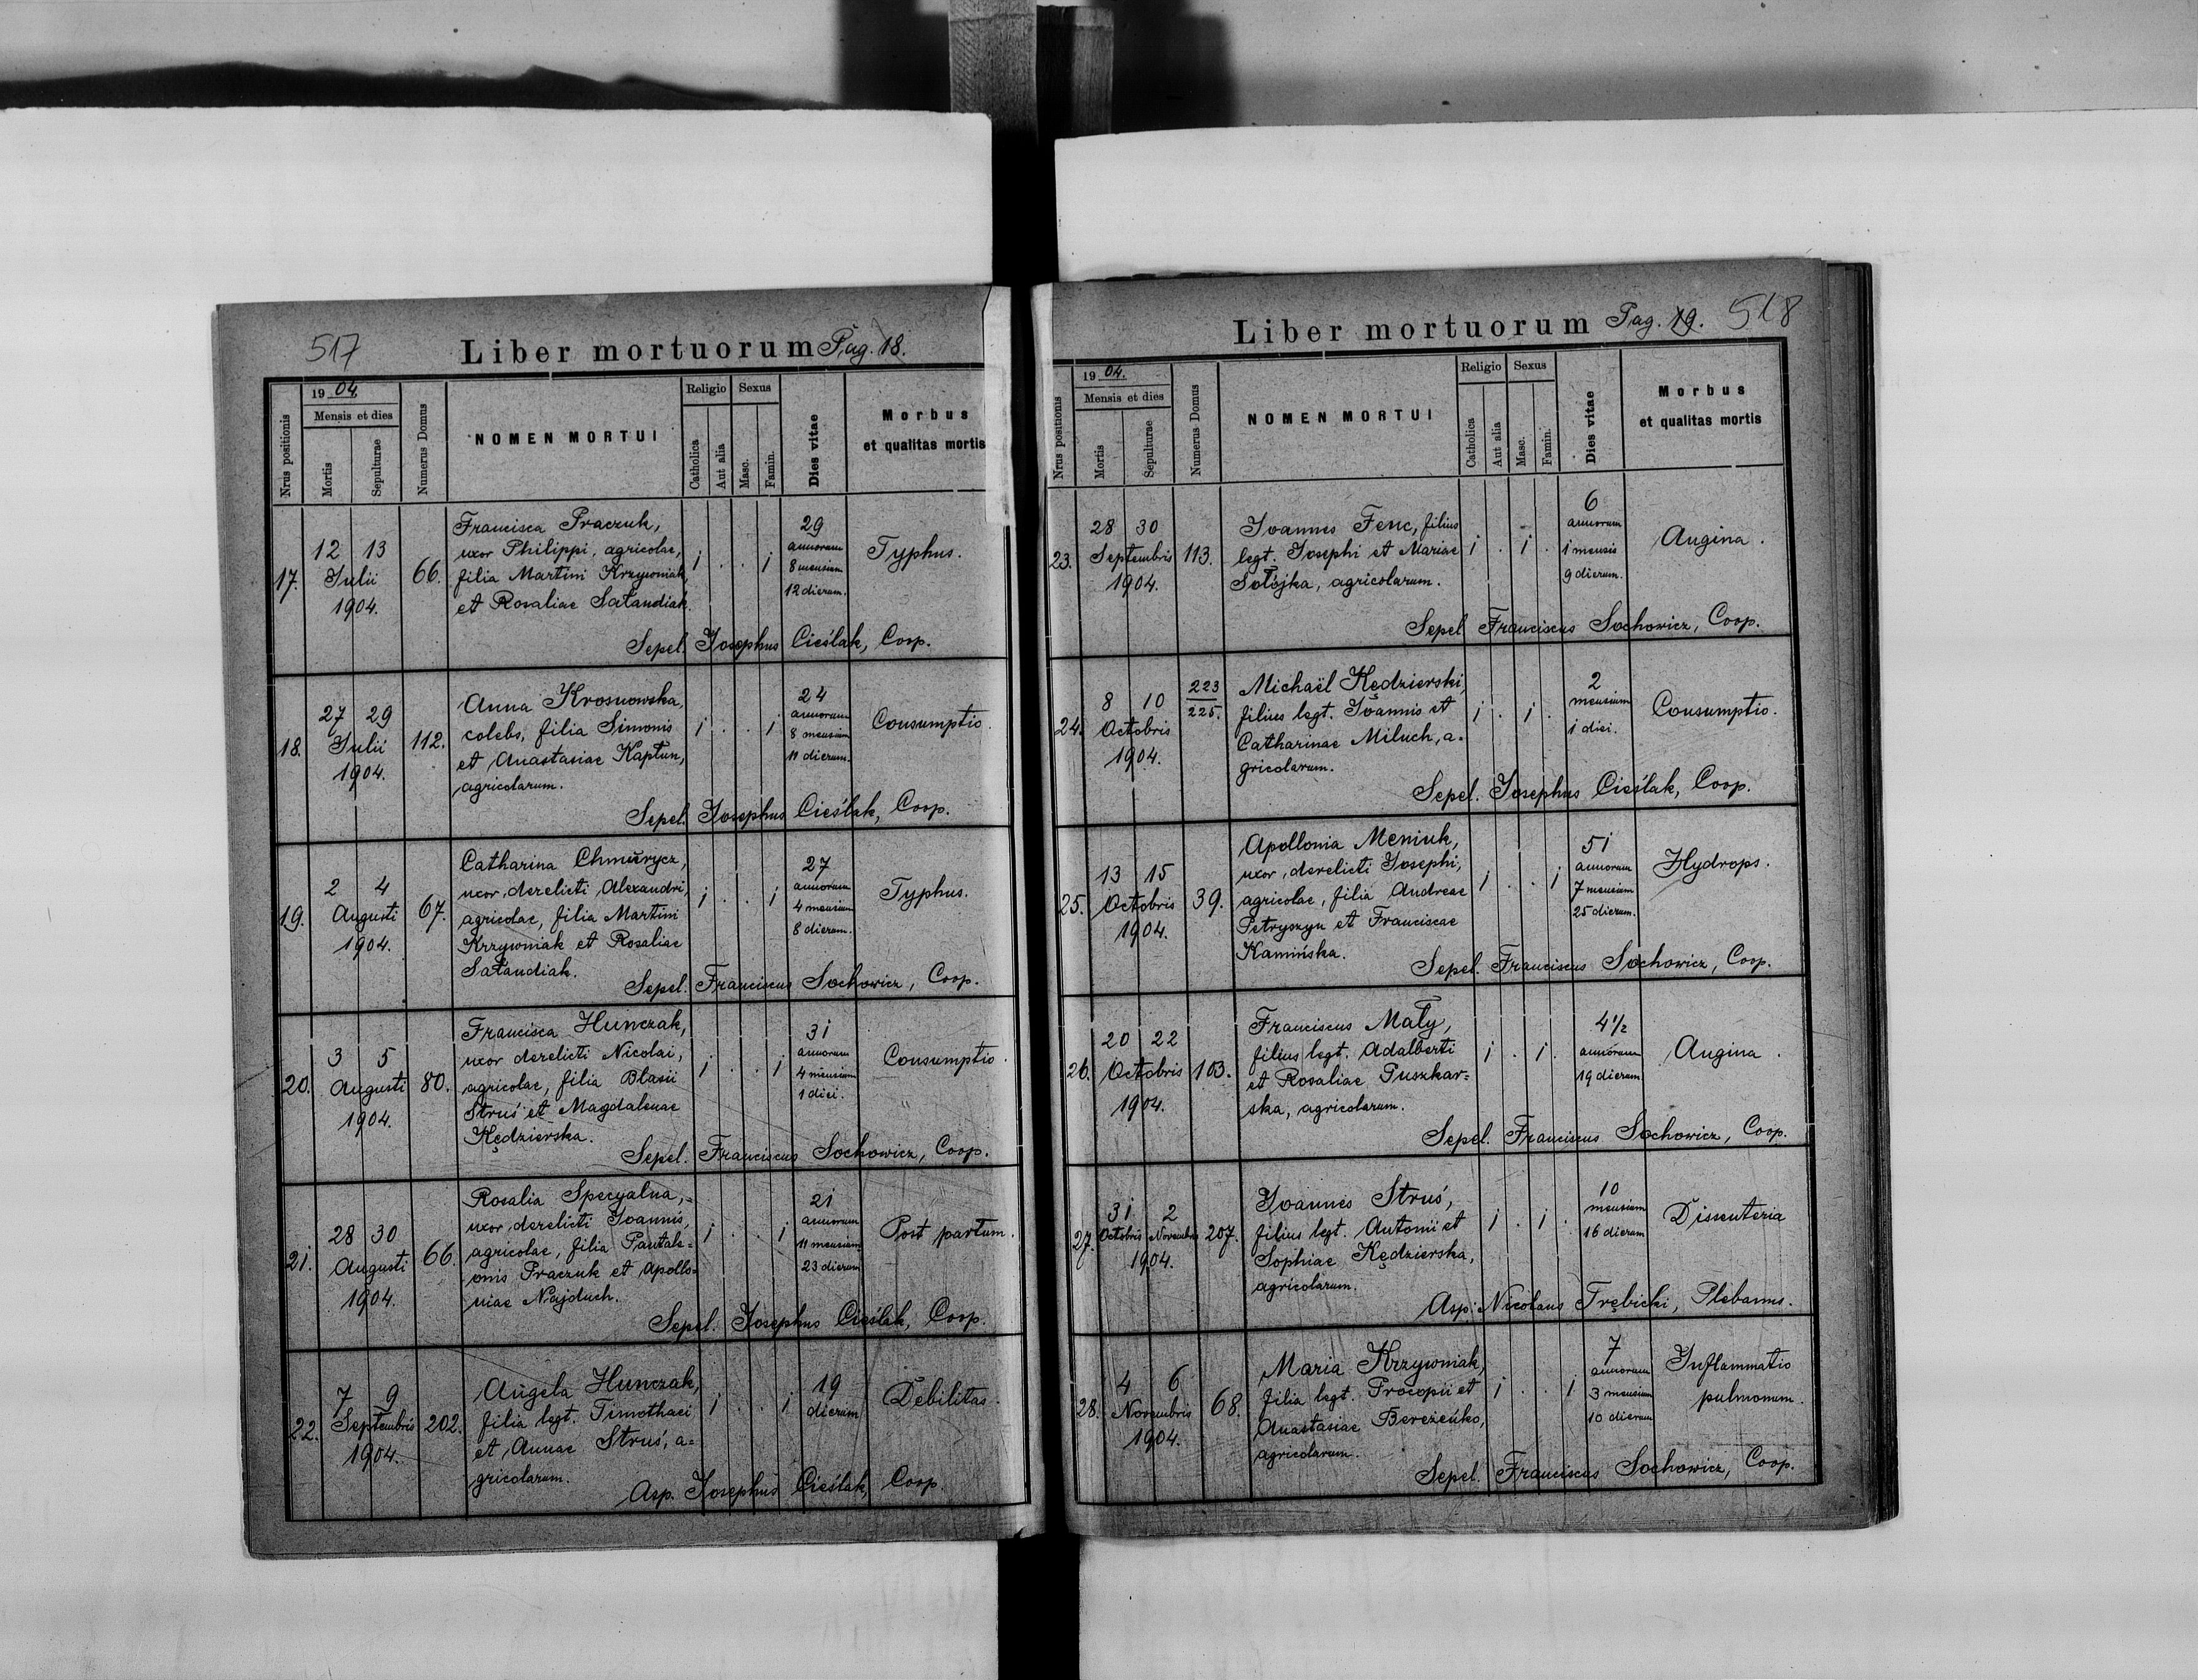 517
Liber mortuorum Pag. 18.
Nrus positionis
1904.
Mensis et dies
Mortis
Sepulturae
Numerus Domus
NOMEN MORTUI
Religio
Catholica
Aut alia
Sexus
Masc.
Famin.
Dies vitae
Morbus
et qualitas mortis
17. 12 13 Julii 1904. 66.
Francisca Praczuk,
uxor Philippi, agricolae,
filia Martini Krzywniak,
et Rosaliae Sałandiak.
1 . . 1
29
annorum
8 mensium
12 dierum.
Typhus.
Sepel. Josephus Cieślak, Coop.
18. 27 29 Julii 1904. 112.
Anna Krosnowska,
colebs, filia Simonis
et Anastasiae Kapłun,
agricolarum.
1 . . 1
24
annorum
8 mensium
11 dierum.
Consumptio.
Sepel. Josephus Cieślak, Coop.
19. 2 4 Augusti 1904. 67.
Catharina Chmurycz,
uxor derelicti Alexandri,
agricolae, filia Martini
Krzywniak et Rosaliae
Sałandiak.
1 . . 1
27
annorum
4 mensium
8 dierum.
Typhus.
Sepel. Franciscus Sochowicz, Coop.
20. 3 5 Augusti 1904. 80.
Francisca Hunczak,
uxor derelicti Nicolai,
agricolae, filia Blasii
Struś et Magdalenae
Kędzierska.
1 . . 1
31
annorum
4 mensium
1 diei.
Consumptio.
Sepel. Franciscus Sochowicz, Coop.
21. 28 30 Augusti 1904. 66.
Rosalia Specyalna,
uxor derelicti Joannis,
agricolae, filia Pantale=
onis Praczuk et Apollo=
niae Najduch.
1 . . 1
21
annorum
11 mensium
23 dierum
Post partum.
Sepel. Josephus Cieślak, Coop.
22. 7 9 Septembris 1904. 202.
Angela Hunczak,
filia legt. Timothaei
et Annae Struś, a=
gricolarum.
1 . . 1
19
dierum
Debilitas.
Asp. Josephus Cieślak, Coop.
Liber mortuorum Pag. 19. 518
Nrus positionis
1904.
Mensis et dies
Mortis
Sepulturae
Numerus Domus
NOMEN MORTUI
Religio
Catholica
Aut alia
Sexus
Masc.
Famin.
Dies vitae
Morbus
et qualitas mortis
23. 28 30 Septembris 1904. 113.
Joannes Fenc, filius
legt. Josephi et Mariae
Sołojka, agricolarum.
1 . 1 .
6
annorum
1 mensis
9 dierum.
Angina.
Sepel Franciscus Sochowicz, Coop.
24. 8 10 Octobris 1904. 223
225.
Michaël Kędzierski,
filius legt. Joannis et
Catharinae Miluch, a=
gricolarum.
1 . 1 .
2
mensium
1 diei.
Consumptio.
Sepel. Josephus Cieślak, Coop.
25. 13 15 Octobris 1904. 39.
Apollonia Meniuk,
uxor derelicti Josephi,
agricolae, filia Andreae
Petryszyn et Franciscae
Kamińska.
1 . . 1
51
annorum
7 mensium
25 dierum.
Hydrops.
Sepel. Franciscus Sochowicz, Coop.
26. 20 22 Octobris 1904. 103.
Franciscus Mały,
filius legt. Adalberti
et Rosaliae Puszkar=
ska, agricolarum.
1 . 1 .
4 1/2
annorum
19 dierum
Angina.
Sepel. Franciscus Sochowicz, Coop.
27. 31 Octobris 2 Novembris 1904. 207.
Joannes Struś,
filius legt. Antonii et
Sophiae Kędzierska,
agricolarum.
1 . 1 .
10
mensium
16 dierum
Dissenteria
Asp. Nicolaus Trębicki, Plebanus.
28. 4 6 Novembris 1904. 68.
Maria Krzywniak,
filia legt. Procopii et
Anastasiae Bereżeńko,
agricolarum.
1 . . 1
7
annorum
3 mensium
10 dierum
Inflammatio
pulmonum.
Sepel. Franciscus Sochowicz, Coop.